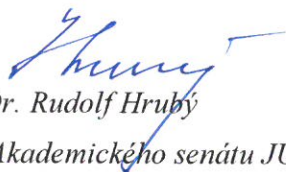 Dr. Rudolf Hrubý
Akademického senátu JU